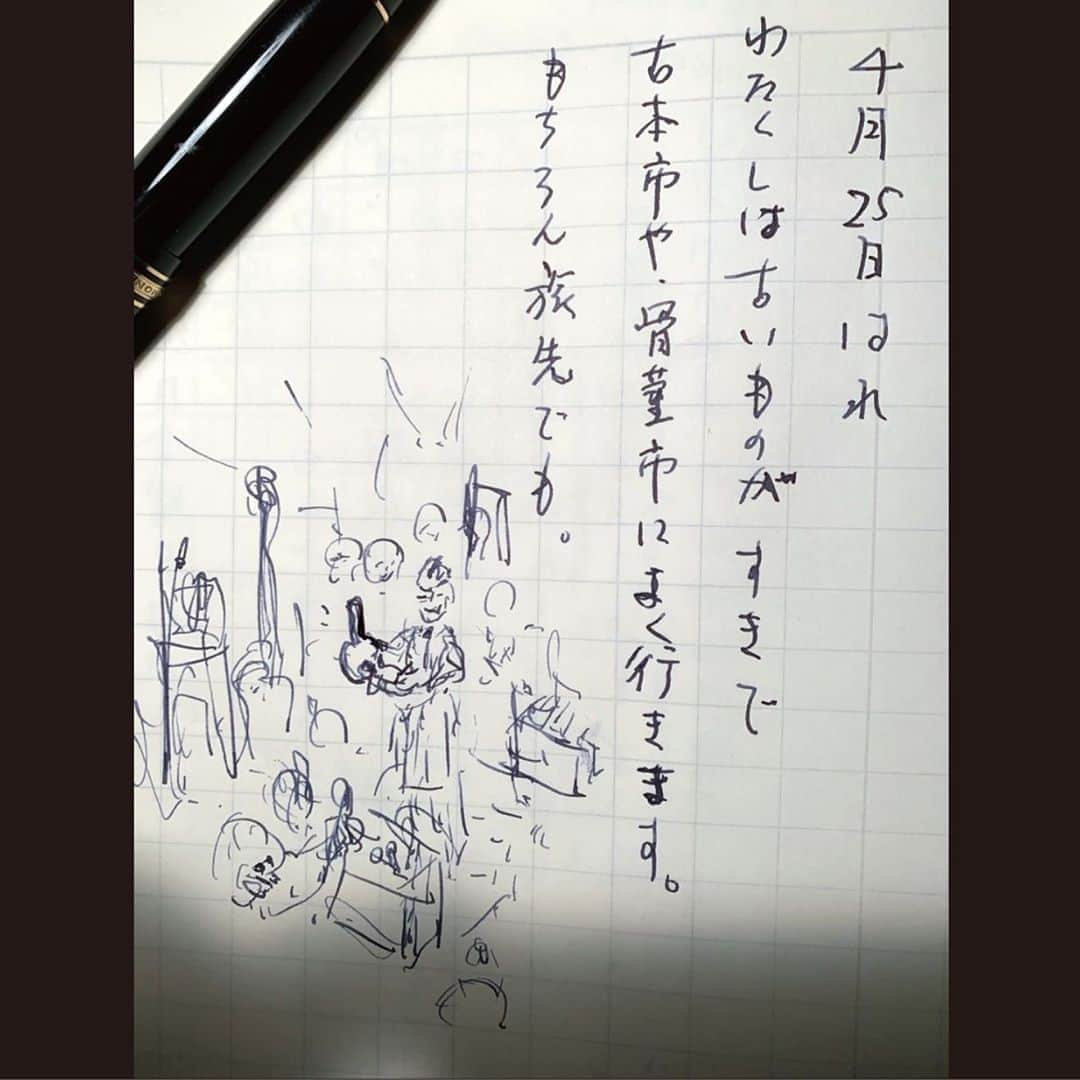 4月25日はれ
わたくしは古いものがすきで
古本市や、骨董市によく行きます。
もちろん旅先でも。